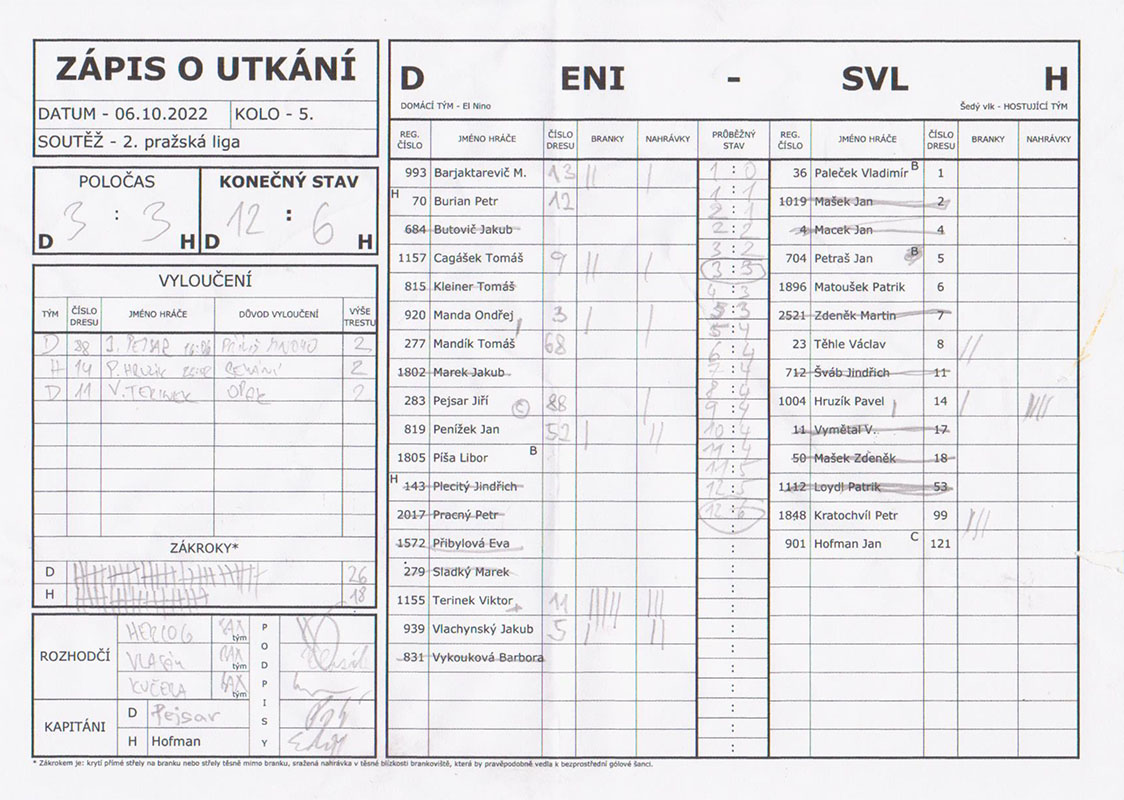 ZÁPIS O UTKÁNÍ
DATUM - 06.10.2022 KOLO - 5.
SOUTĚŽ - 2. pražská liga
POLOČAS KONEČNÝ STAV
D 3 : 3 H D 12 : 6 H
VYLOUČENÍ
TÝM ČÍSLO DRESU JMÉNO HRÁČE DŮVOD VYLOUČENÍ VÝŠE TRESTU
D 38 J. PEJSAR 2
H 14 P. HRUZÍK 2
D 11 V. TERINEK OPAK 2
ZÁKROKY*
D 26
H 18
ROZHODČÍ HERCOG tým
tým
KUČERA tým
PODPISY
KAPITÁNI D Pejsar
H Hofman
D ENI - SVL H
DOMÁCÍ TÝM - El Nino Šedý vlk - HOSTUJÍCÍ TÝM
REG. ČÍSLO JMÉNO HRÁČE ČÍSLO DRESU BRANKY NAHRÁVKY PRŮBĚŽNÝ STAV REG. ČÍSLO JMÉNO HRÁČE ČÍSLO DRESU BRANKY NAHRÁVKY
993 Barjaktarevič M. 13
H 70 Burian Petr 12
684 Butovič Jakub
1157 Cagášek Tomáš 9
815 Kleiner Tomáš
920 Manda Ondřej 3
277 Mandík Tomáš 68
1802 Marek Jakub
283 Pejsar Jiří C 88
819 Penížek Jan 52
1805 Píša Libor B
H 143 Plecitý Jindřich
2017 Pracný Petr
1572 Přibylová Eva
279 Sladký Marek
1155 Terinek Viktor 11
939 Vlachynský Jakub 5
831 Vykouková Barbora
1 : 0
1 : 1
2 : 1
2 : 2
3 : 2
3 : 3
4 : 3
5 : 3
5 : 4
6 : 4
7 : 4
8 : 4
9 : 4
10 : 4
11 : 4
11 : 5
12 : 5
12 : 6
36 Paleček Vladimír B 1
1019 Mašek Jan 2
4 Macek Jan 4
704 Petraš Jan B 5
1896 Matoušek Patrik 6
2521 Zdeněk Martin 7
23 Těhle Václav 8
712 Šváb Jindřich 11
1004 Hruzík Pavel 14
11 Vymětal V. 17
50 Mašek Zdeněk 18
1112 Loydl Patrik 53
1848 Kratochvíl Petr 99
901 Hofman Jan C 121
* Zákrokem je: krytí přímé střely na branku nebo střely těsně mimo branku, sražená nahrávka v těsné blízkosti brankoviště, která by pravěpodobně vedla k bezprostřední gólové šanci.